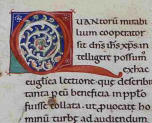 QVANTORU MIRABI
lium cooperator
sit dns ihs xps an
telligere possum
Ex hac
euglica lectione que describit
tanta peru beneficia in pplo
fuisse collata ut puocate ho
minu turbe ad audiendum